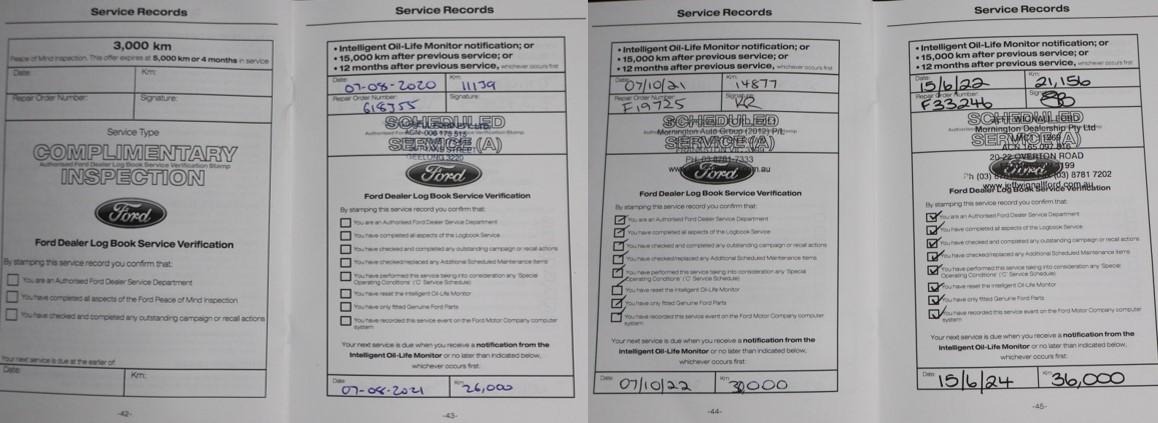 Service Records
3,000 km
Peace of Mind Inspection. This offer expires at 5,000 km or 4 months in service
Date:
Km:
Repair Order Number:
Signature:
Service Type
COMPLIMENTARY
Authorised Ford Dealer Log Book Service Verification Stamp
INSPECTION
Ford
Ford Dealer Log Book Service Verification
By stamping this service record you confirm that:
You are an Authorised Ford Dealer Service Department
You have completed all aspects of the Ford Peace of Mind Inspection
You have checked and completed any outstanding campaign or recall actions
Your next service is due at the earlier of:
Date:
Km:
-42-
Service Records
• Intelligent Oil-Life Monitor notification; or
• 15,000 km after previous service; or
• 12 months after previous service, whichever occurs first
Date:
07-08-2020
Km:
11139
Repair Order Number:
618755
Signature:
SCHEDULED
SERVICE (A)
Ford
Ford Dealer Log Book Service Verification
By stamping this service record you confirm that:
You are an Authorised Ford Dealer Service Department
You have completed all aspects of the Logbook Service
You have checked and completed any outstanding campaign or recall actions
You have checked/replaced any Additional Scheduled Maintenance items
You have performed this service taking into consideration any 'Special
Operating Conditions' ('C' Service Schedule)
You have reset the Intelligent Oil-Life Monitor
You have only fitted Genuine Ford Parts
You have recorded this service event on the Ford Motor Company computer
system
Your next service is due when you receive a notification from the
Intelligent Oil-Life Monitor or no later than indicated below,
whichever occurs first:
Date:
07-08-2021
Km:
26,000
-43-
Service Records
• Intelligent Oil-Life Monitor notification; or
• 15,000 km after previous service; or
• 12 months after previous service, whichever occurs first
Date:
07/10/21
Km:
14877
Repair Order Number:
F19725
Signature:
SCHEDULED
Mornington Auto Group (2012) P/L
SERVICE (A)
Ford
Ford Dealer Log Book Service Verification
By stamping this service record you confirm that:
You are an Authorised Ford Dealer Service Department
You have completed all aspects of the Logbook Service
You have checked and completed any outstanding campaign or recall actions
You have checked/replaced any Additional Scheduled Maintenance items
You have performed this service taking into consideration any 'Special
Operating Conditions' ('C' Service Schedule)
You have reset the Intelligent Oil-Life Monitor
You have only fitted Genuine Ford Parts
You have recorded this service event on the Ford Motor Company computer
system
Your next service is due when you receive a notification from the
Intelligent Oil-Life Monitor or no later than indicated below,
whichever occurs first:
Date:
07/10/22
Km:
30000
-44-
Service Records
• Intelligent Oil-Life Monitor notification; or
• 15,000 km after previous service; or
• 12 months after previous service, whichever occurs first
Date:
15/6/22
Km:
21,156
Repair Order Number:
F33246
SCHEDULED
Mornington Dealership Pty Ltd
SERVICE (A)
20-22 OVERTON ROAD
Ford
Ph (03)
(03) 8781 7202
www.jeffwignallford.com.au
Ford Dealer Log Book Service Verification
By stamping this service record you confirm that:
You are an Authorised Ford Dealer Service Department
You have completed all aspects of the Logbook Service
You have checked and completed any outstanding campaign or recall actions
You have checked/replaced any Additional Scheduled Maintenance items
You have performed this service taking into consideration any 'Special
Operating Conditions' ('C' Service Schedule)
You have reset the Intelligent Oil-Life Monitor
You have only fitted Genuine Ford Parts
You have recorded this service event on the Ford Motor Company computer
system
Your next service is due when you receive a notification from the
Intelligent Oil-Life Monitor or no later than indicated below,
whichever occurs first:
Date:
15/6/24
Km:
36,000
-45-